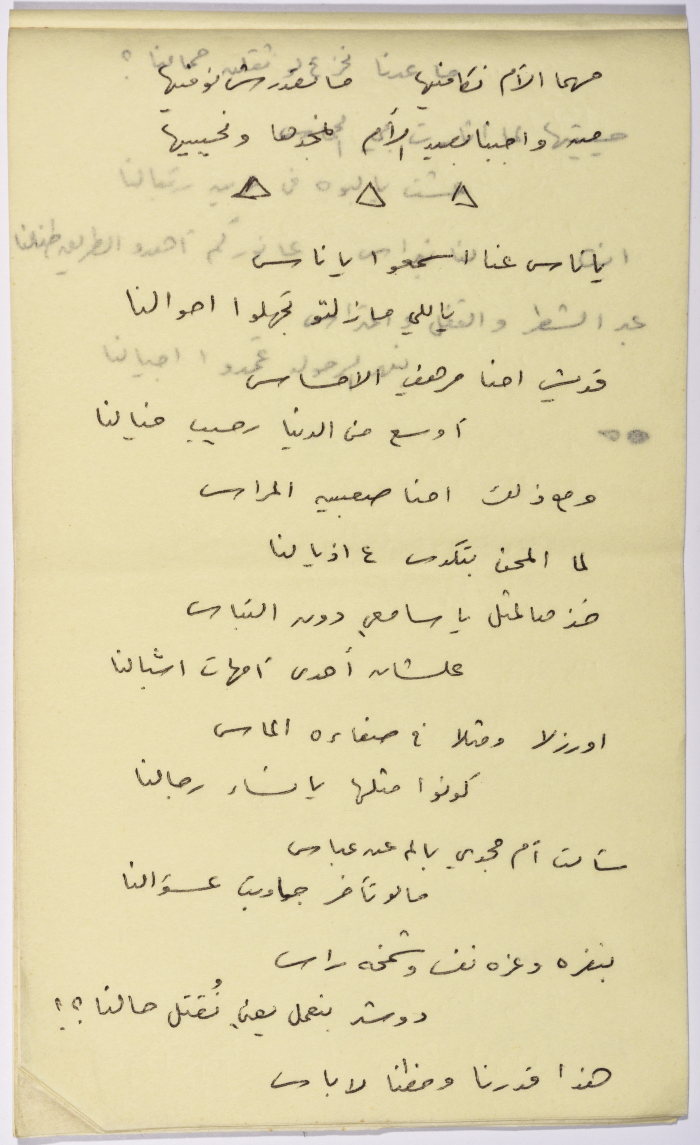 مهما الأم نكافيها ما نقدرش نوفيها
واجبنا الأم نمجدها ونحييها
يا ناس عنا اسمعوا يا ناس
ياللي ما زلتو تجهلوا احوالنا
قديش احنا مرهفي الاحساس
أوسع من الدنيا رحيب خيالنا
ومع ذلك احنا صعبين المراس
لما المحن بتكدس ع اذيالنا
خذ هالمثل يا سامعي دون التباس
علشان أحدى أمهات اشبالنا
اورزلا ومثلا في صفاءه الماس
كونوا مثلها يا نساء رجالنا
سألت أم مجدي بالم عن عباس
مالو تأخر جاوبت عسؤالنا
بنفره وعزه نفس وشمخة راس
وشو بنعمل يعني نُقتل حالنا؟؟
هذا قدرنا وحظنا لا باس